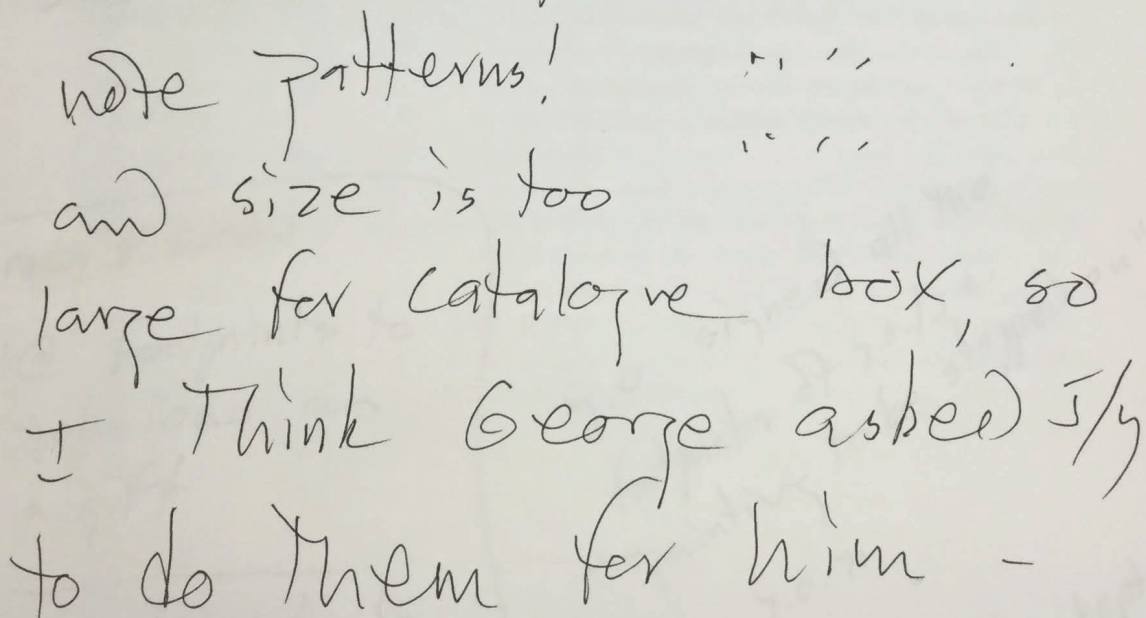 note patterns!
and size is too
large for catalogue box, so
I think George asked J/y
to do them for him -